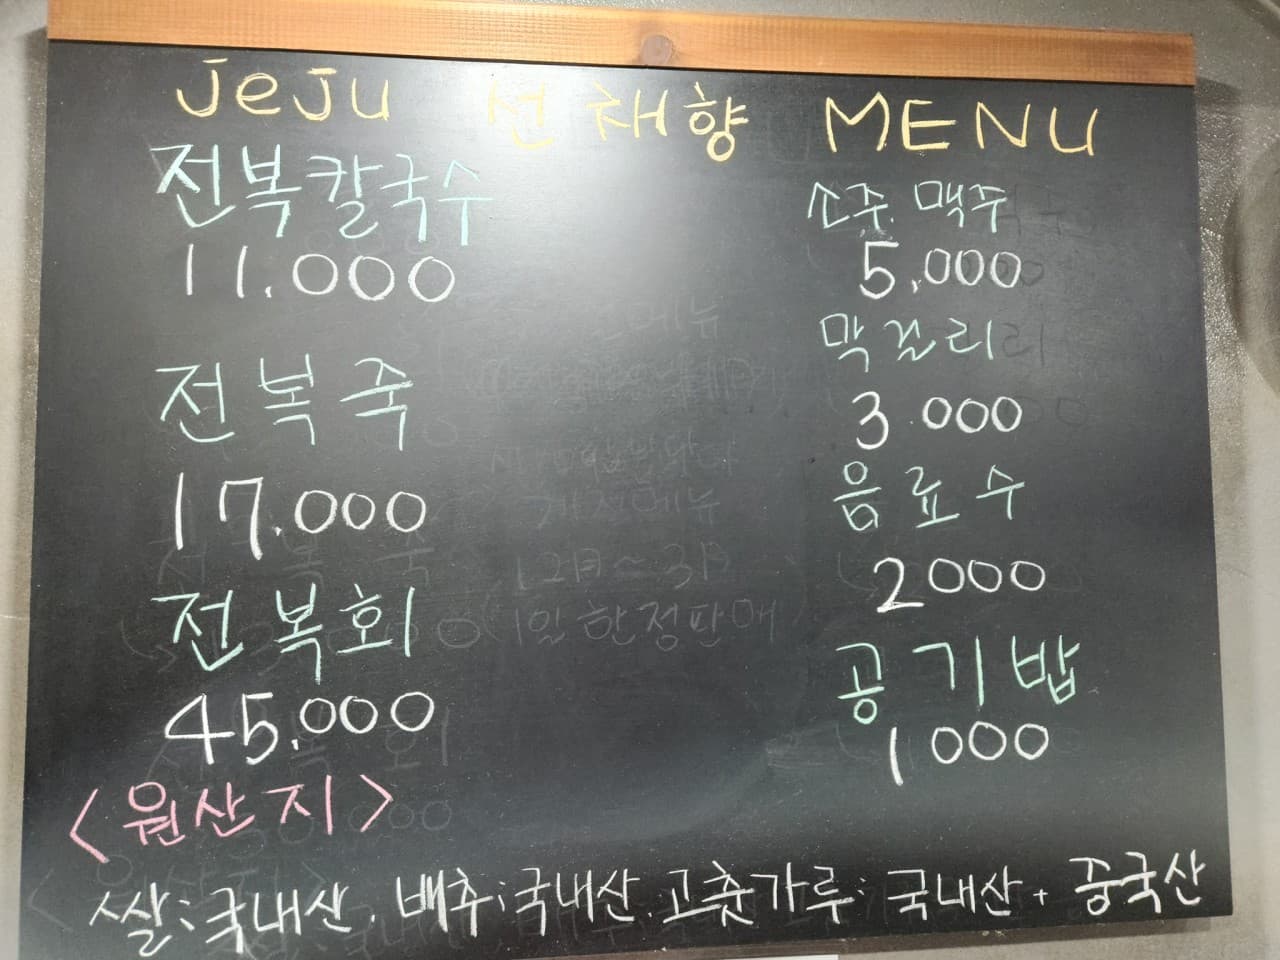 JeJu 선채향 MENU
전복칼국수
11.000
전복죽
17.000
전복회
45.000
소주. 맥주
5.000
막걸리
3.000
음료수
2000
공기밥
1000
<원산지>
쌀:국내산. 배추:국내산. 고춧가루: 국내산+중국산
12月~3月
1일 한정판매